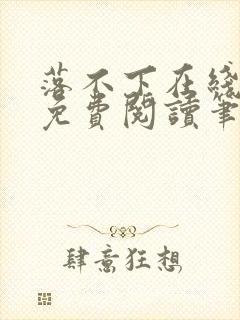 落不下在綫
免費閱讀筆
肆意狂想